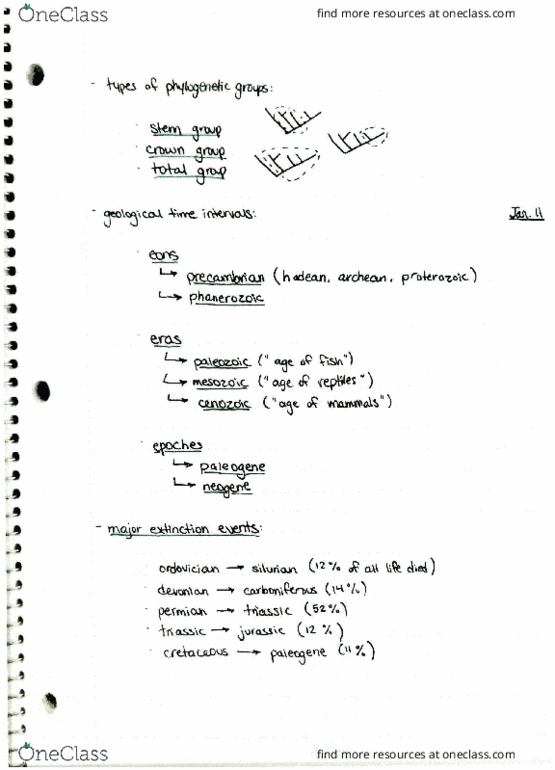 OneClass
find more resources at oneclass.com
- types of phylogenetic groups:
· stem group
· crown group
· total group
- geological time intervals:
Jan. 11
· eons
↳ precambrian (hadean, archean, proterozoic)
↳ phanerozoic
· eras
↳ paleozoic ("age of fish")
↳ mesozoic ("age of reptiles")
↳ cenozoic ("age of mammals")
· epoches
↳ paleogene
↳ neogene
- major extinction events:
· ordovician → silurian (12% of all life died)
· devonian → carboniferous (14%)
· permian → triassic (52%)
· triassic → jurassic (12%)
· cretaceous → paleogene (11%)
OneClass
find more resources at oneclass.com